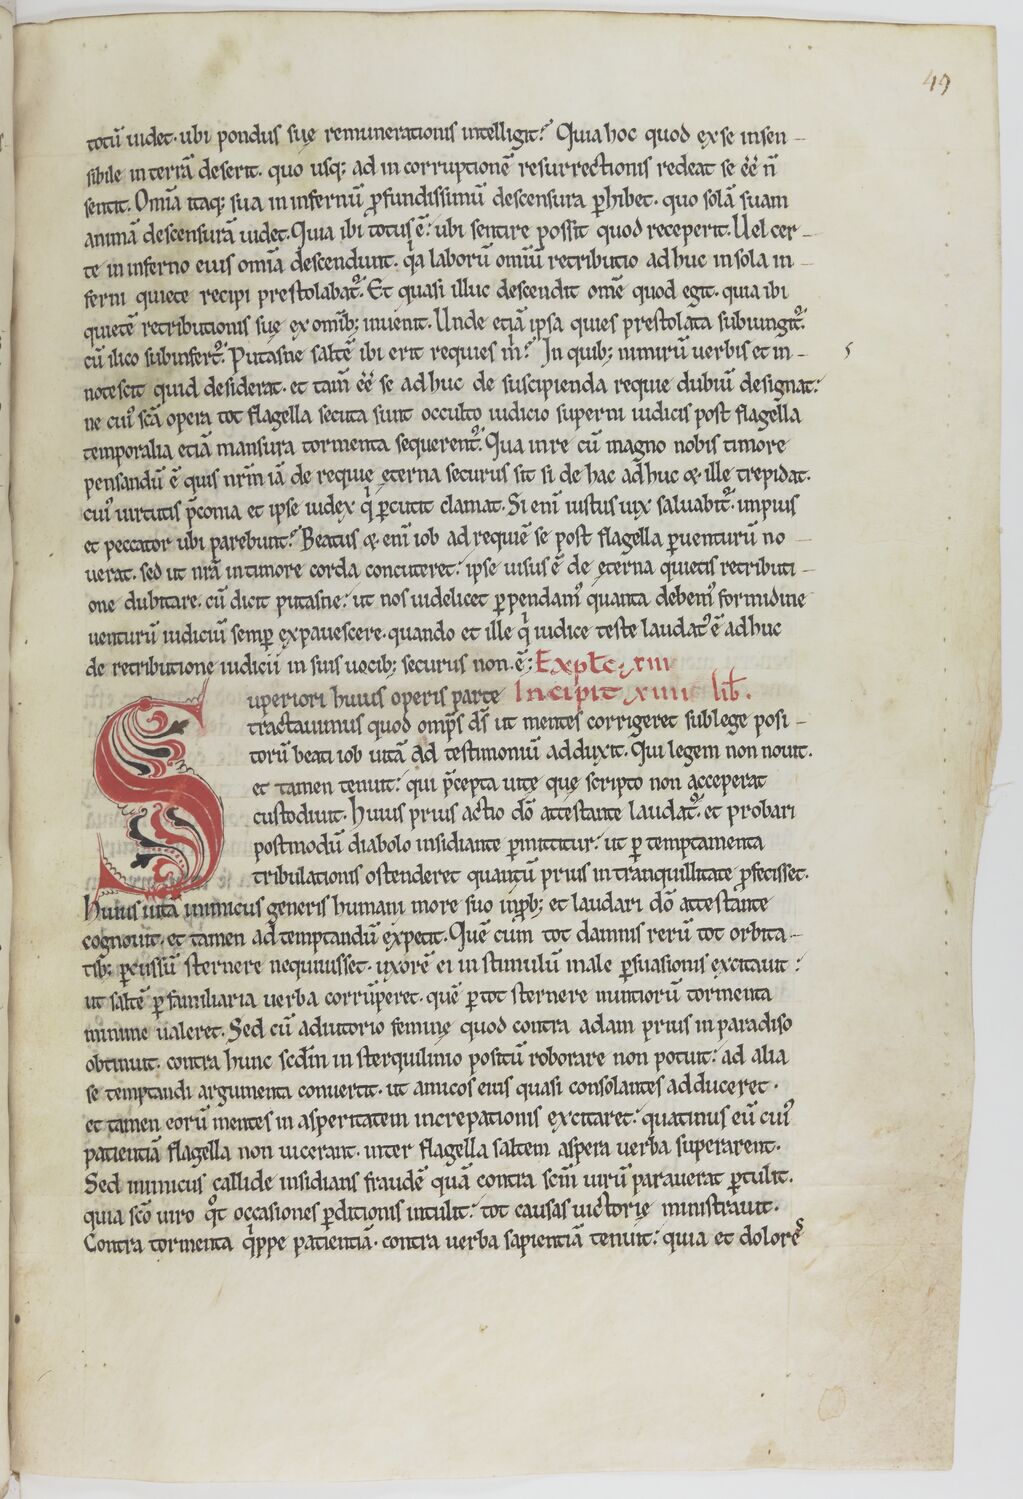 49
totū uidet· ubi pondus suę remunerationis intelligit? Quia hoc quod ex se insen-
sibile in terrā deserit· quo usq; ad incorruptionē resurrectionis redeat se ēē n̄
sentit. Om̄ia itaq; sua in infernū ꝓfundissimū descensura ꝑhibet· quo solā suam
animā descensurā uidet. Quia ibi totus ē? ubi sentire possit quod receperit. Uel cer-
te in inferno eius om̄ia descendunt· q̇a laborū omiū retributio adhuc in sola in-
ferni quiete recipi prestolabat᷑. Et quasi illuc descendit om̄e quod egit· quia ibi
quietē retributionis suę ex om̄ib; inuenit. Unde etiā ipsa quies prestolata subiungit᷑.
cū ilico subinfert᷑. Putasne saltē ibi erit requies m̄? In quib; nimirū uerbis et in-
notescit quid desiderat· et tam̄ ēē se adhuc de suscipienda requie dubiū designat?
ne cui᷒ sc̄a opera tot flagella secuta sunt occulto iudicio superni iudicis post flagella
temporalia etiā mansura tormenta sequerent᷑. Qua in re cū magno nobis timore
pensandū ē quis nr̄m iā de requie ęterna securus sit si de hac adhuc & ille trepidat·
cui᷒ uirtutis p̄conia et ipse iudex q̇ ꝑcutit clamat. Si eni iustus uix saluabit᷑· impius
et peccator ubi parebunt? Beatus & eni iob ad requiē se post flagella ꝑuenturū no-
uerat· sed ut nr̄a in timore corda concuteret? ipse uisus ē de ęterna quietis retributi-
one dubitare· cū dicit putasne? ut nos uidelicet ꝑpendam᷒ quanta debem᷒ formidine
uenturū iudiciū semꝑ expauescere· quando et ille q̇ iudice teste laudat᷒ ē adhuc
de retributione iudicii in suis uocib; securus non ē; Explc̄ xiii
Superiori huius operis parte Incipit xiiii lib̄.
tractauimus quod omp̄s ds̄ ut mentes corrigeret sub lege posi-
torū beati iob uitā ad testimoniū adduxit. Qui legem non nouit·
et tamen tenuit? qui p̄cepta uitę quę scripto non acceperat
custodiuit. Huius prius actio dō attestante laudat᷑· et probari
postmodū diabolo insidiante ꝑmittitur? ut ꝑ temptamenta
tribulationis ostenderet quantū prius in tranquillitate ꝓfecisset.
Huius uitā inimicus generis humani more suo inꝓb; et laudari dō attestante
cognouit· et tamen ad temptandū expetit. Quē cum tot damnis rerū tot orbita-
tib; ꝑcussū sternere nequiuisset· uxorē ei in stimulū male ꝑsuasionis excitauit?
ut saltē ꝑ familiaria uerba corrūperet· quē ꝑ tot sternere nuntiorū tormenta
minime ualeret. Sed cū adiutorio feminę quod contra adam prius in paradiso
obtinuit· contra hunc scdm̄ in sterquilinio positū roborare non potuit? ad alia
se temptandi argumenta conuertit· ut amicos eius quasi consolantes adduceret·
et tamen eorū mentes in asperitatem increpationis excitaret? quatinus eū cui᷒
patientiā flagella non uicerant· inter flagella saltem aspera uerba superarent.
Sed inimicus callide insidians fraudē quā contra scm̄ uirū parauerat ꝑtulit·
quia scō uiro q°t occasiones ꝑditionis intulit? tot causas uictorię ministrauit·
Contra tormenta q̇ppe patientiā· contra uerba sapientiā tenuit? quia et dolorēs